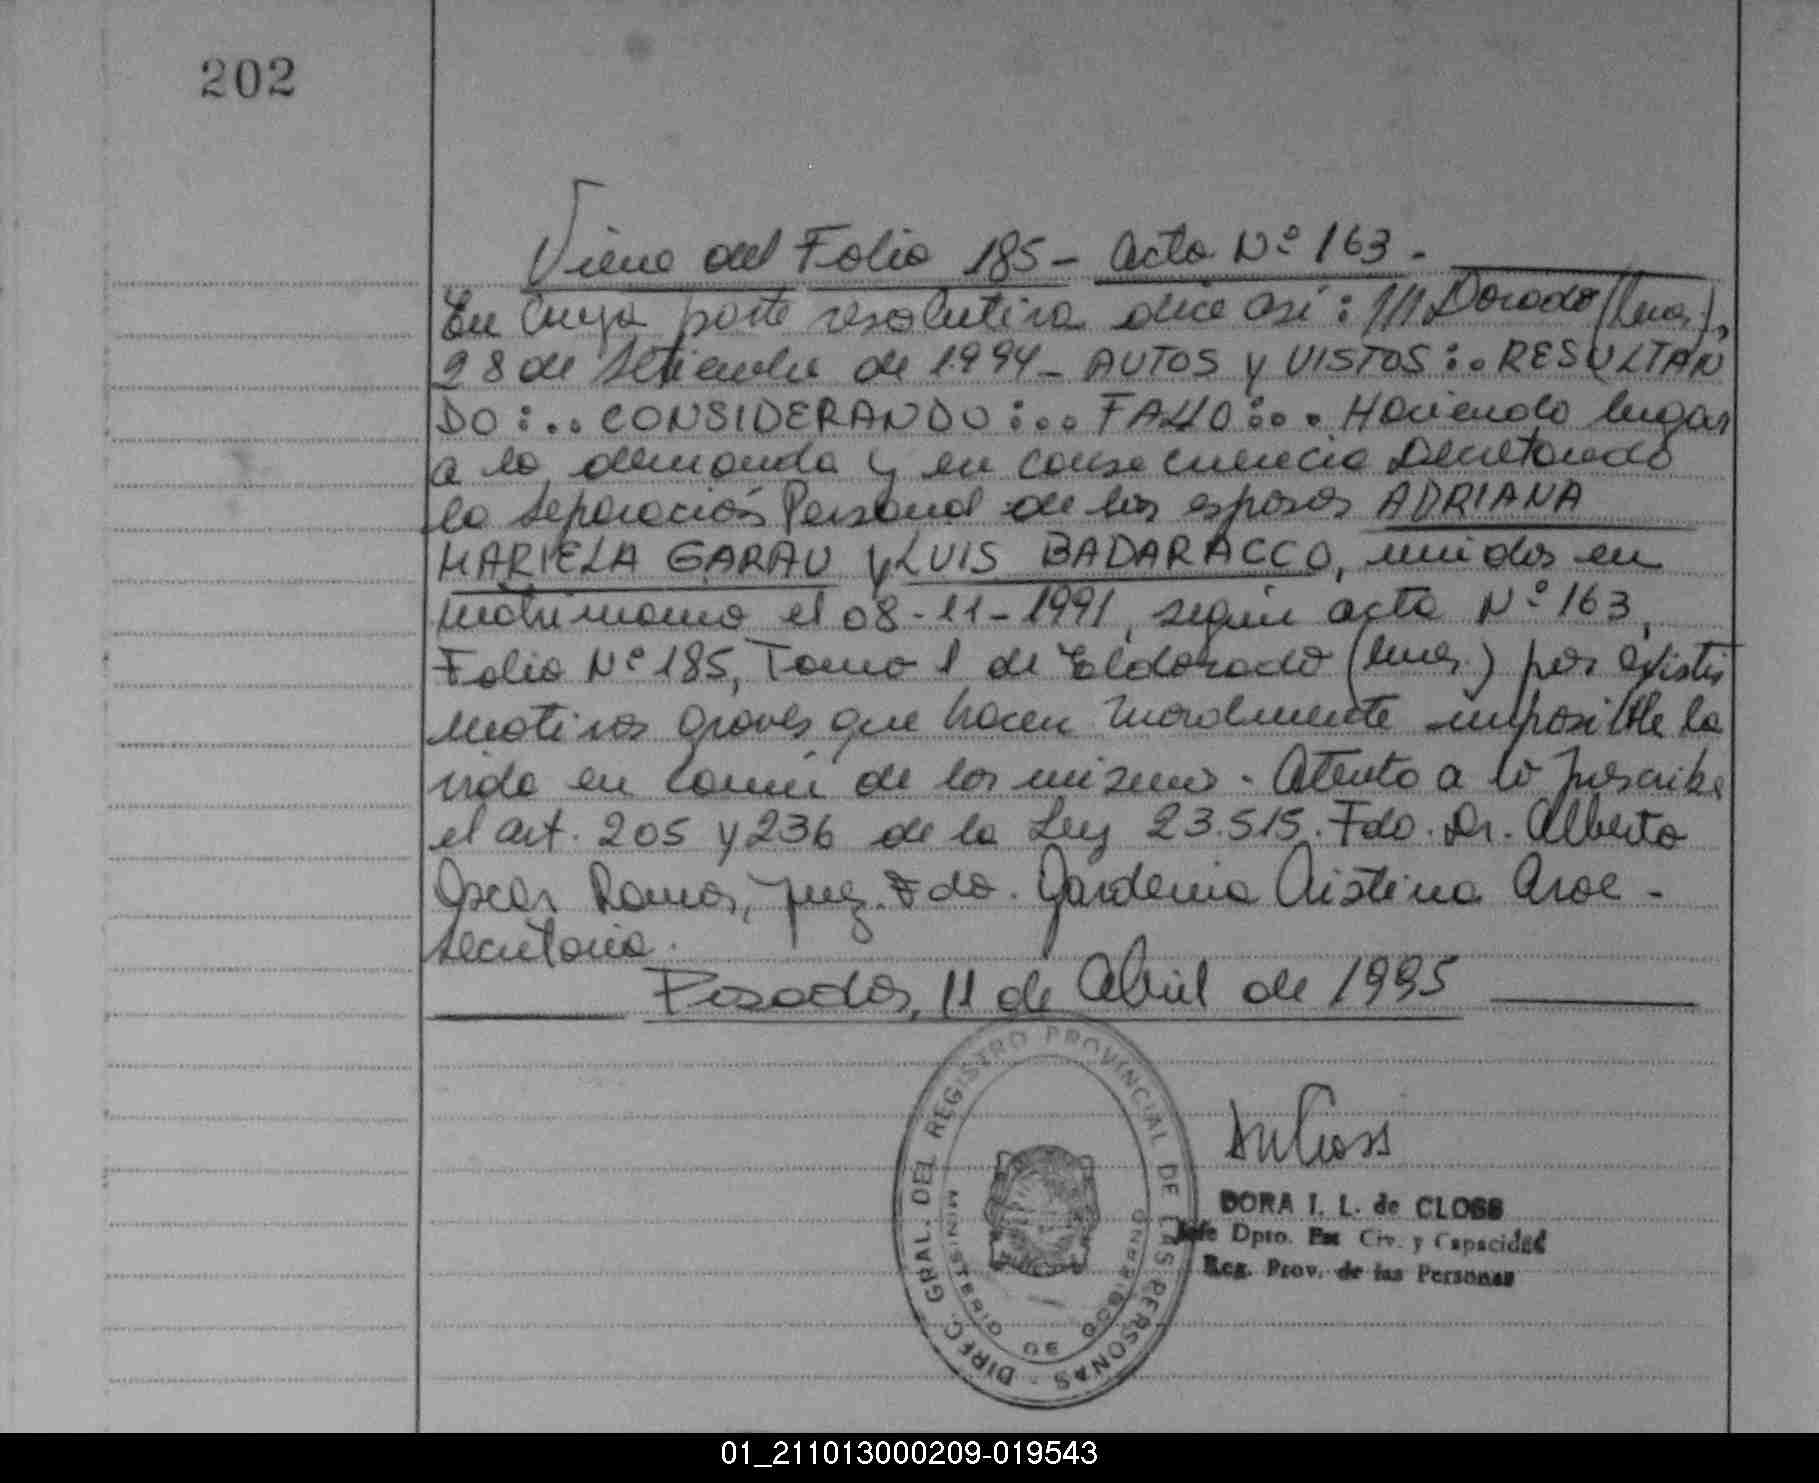 202
Viene del Folio 185 - Acta Nº 163 -
En cuya parte resolutiva dice así: ///Dorado (Mnes.),
28 de Setiembre de 1994 - AUTOS y VISTOS:.. RESULTAN
DO:... CONSIDERANDO:... FALLO:... Haciendo lugar
a la demanda y en consecuencia Decretando
la Separación Personal de los esposos ADRIANA
MARIELA GARAU y LUIS BADARACCO, unidos en
matrimonio el 08-11-1991, según acta Nº 163,
Folio Nº 185, Tomo 1 de Eldorado (Mnes.) por existir
motivos graves que hacen moralmente imposible la
vida en común de los mismos - Atento a lo prescribe
el art. 205 y 236 de la Ley 23.515. Fdo. Dr. Alberto
Oscar Ramos, Juez. Fdo. Gardenia Cristina Aroe -
Secretaria.
Posadas, 11 de Abril de 1995
DIREC. GRAL. DEL REGISTRO PROVINCIAL DE LAS PERSONAS -
MINISTERIO DE GOBIERNO
DORA I. L. de CLOSS
Jefe Dpto. Est Civ. y Capacidad
Reg. Prov. de las Personas
01_211013000209-019543